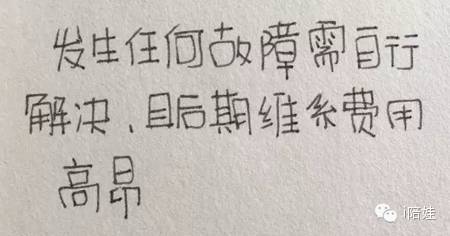 发生任何故障需自行
解决、且后期维系费用
高昂
i陪娃